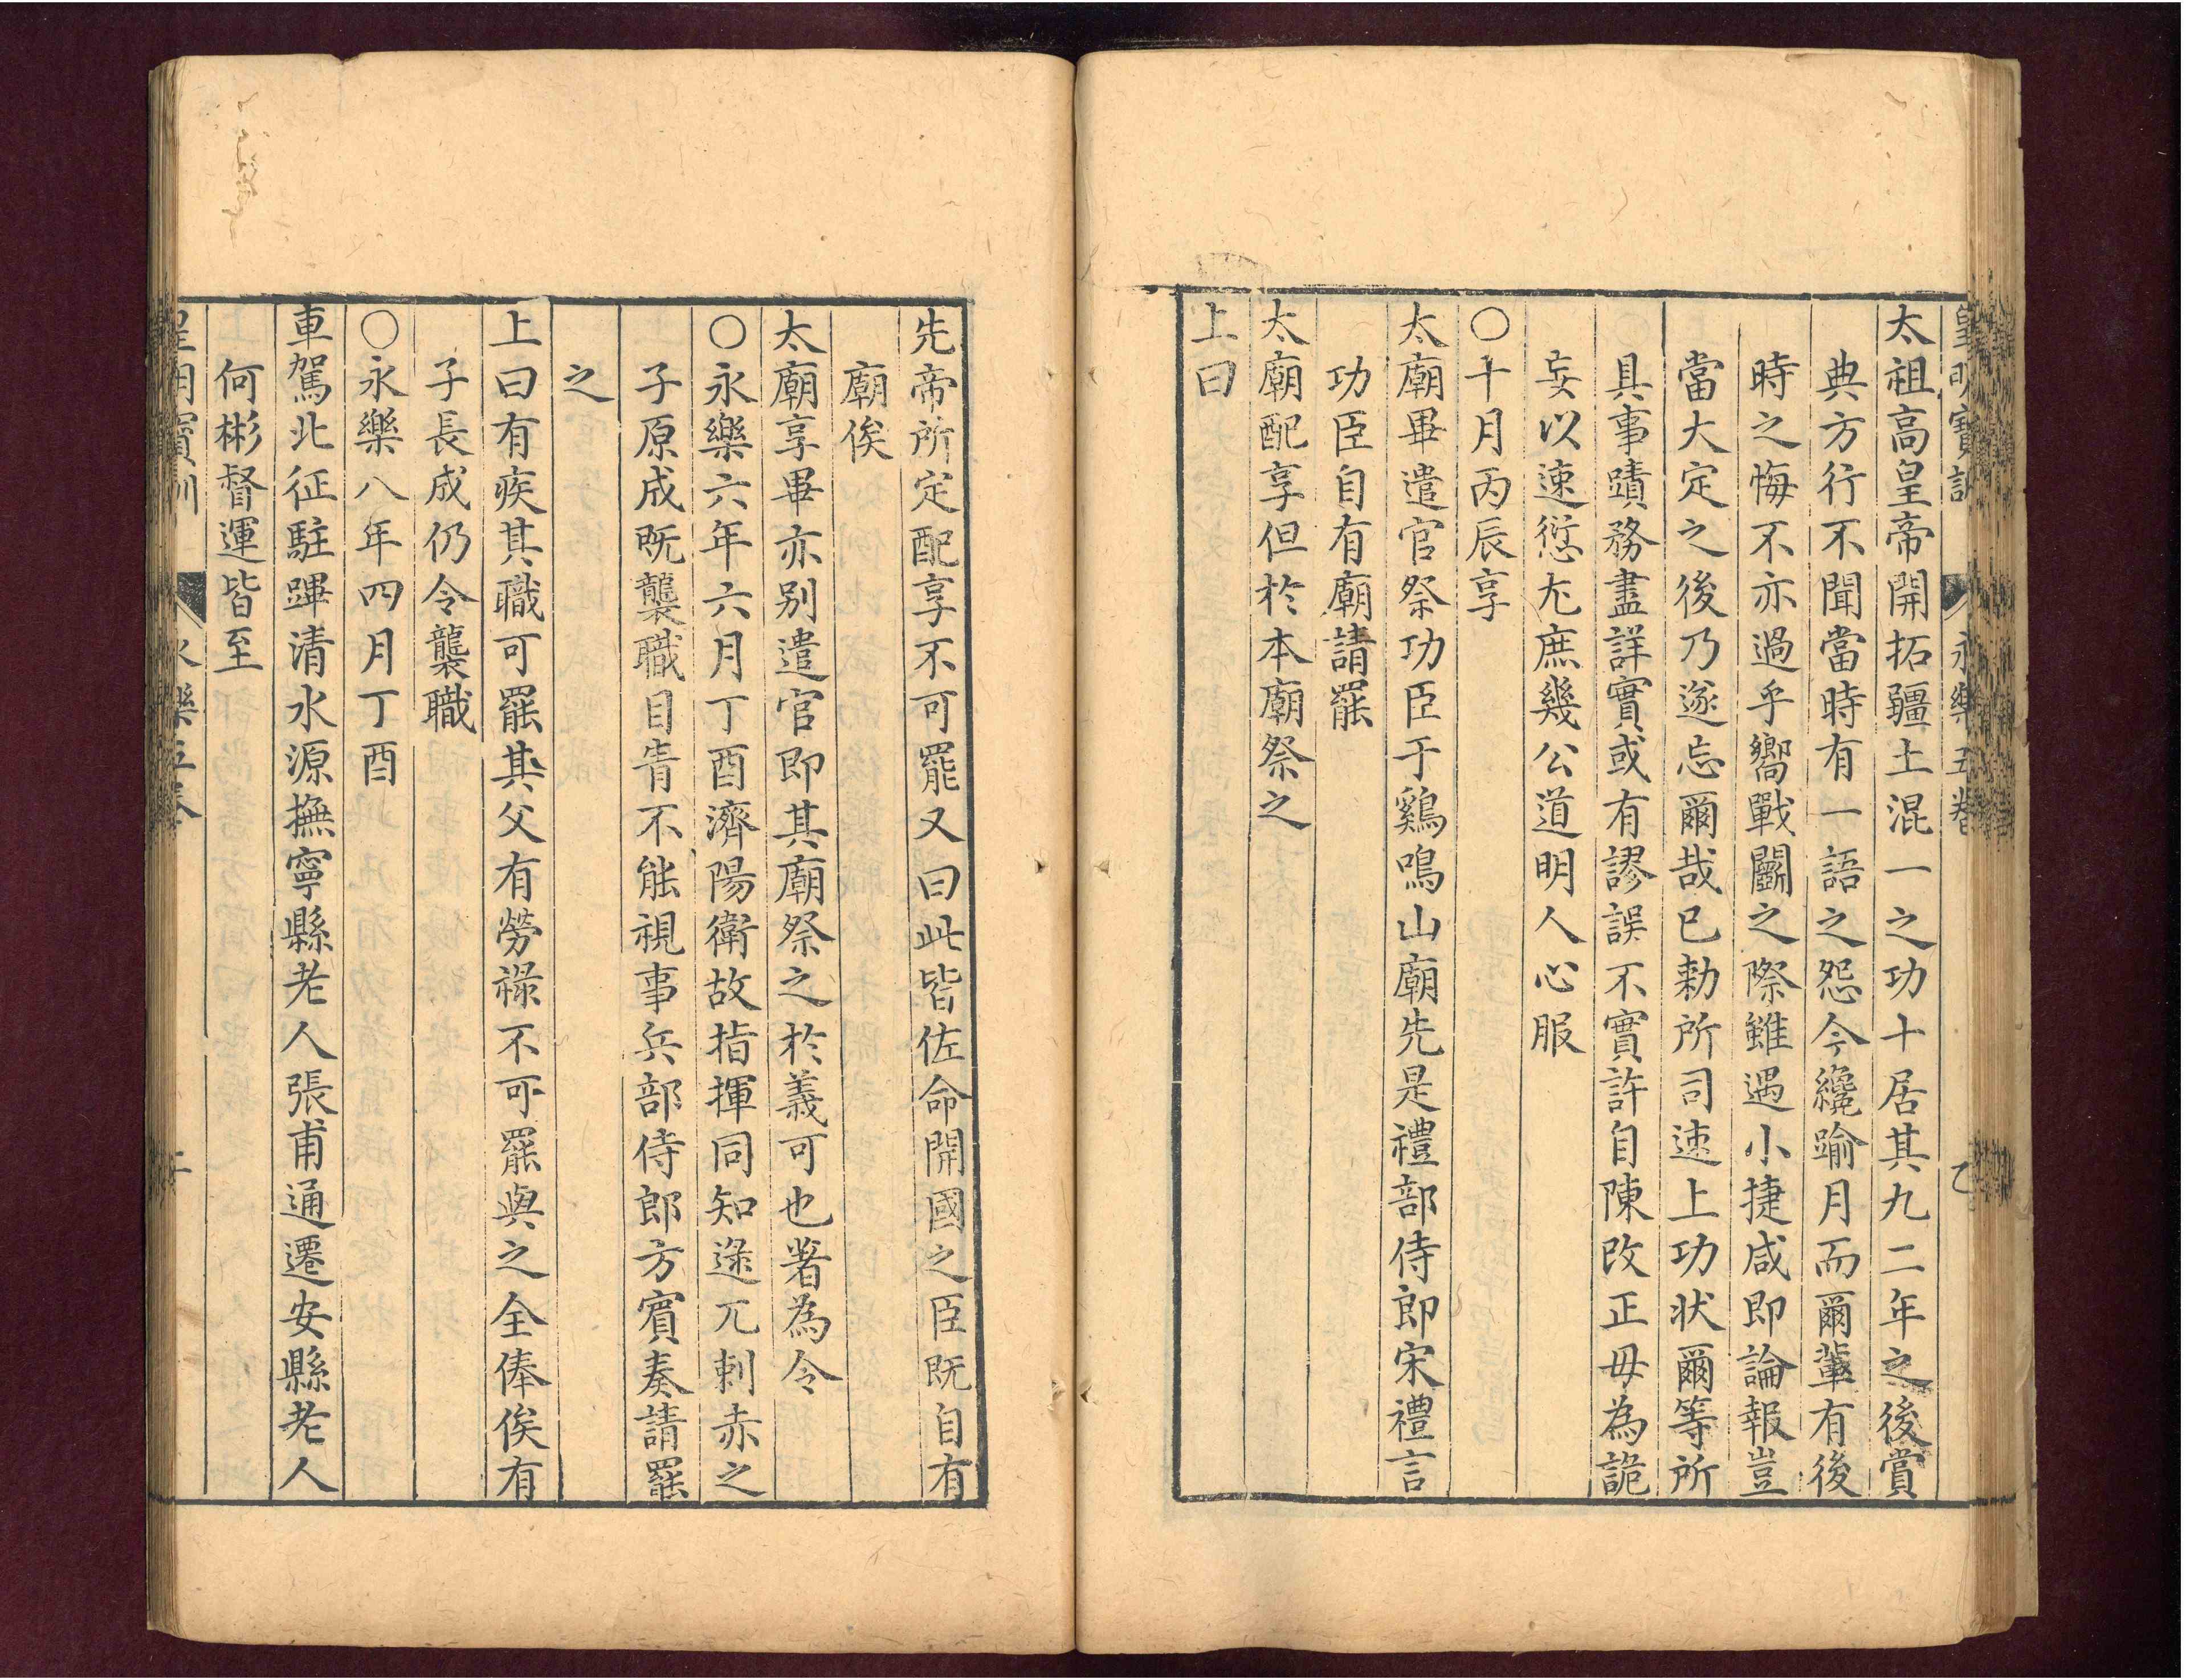 皇明寶訓 永樂五卷 乙
太祖高皇帝開拓疆土混一之功十居其九二年之後賞
典方行不聞當時有一語之怨今纔踰月而爾輩有後
時之悔不亦過乎嚮戰鬭之際雖遇小捷咸即論報豈
當大定之後乃遂忘爾哉已勑所司速上功状爾等所
具事蹟務盡詳實或有謬誤不實許自陳改正毋為詭
妄以速愆尤庶幾公道明人心服
○十月丙辰享
太廟畢遣官祭功臣于鷄鳴山廟先是禮部侍郎宋禮言
功臣自有廟請罷
太廟配享但於本廟祭之
上曰
先帝所定配享不可罷又曰此皆佐命開國之臣既自有
廟俟
太廟享畢亦别遣官即其廟祭之於義可也著為令
○永樂六年六月丁酉濟陽衛故指揮同知逯兀剌赤之
子原成既襲職目眚不能視事兵部侍郎方賓奏請罷
之
上曰有疾其職可罷其父有勞祿不可罷與之全俸俟有
子長成仍令襲職
○永樂八年四月丁酉
車駕北征駐蹕清水源撫寧縣老人張甫通遷安縣老人
何彬督運皆至
皇明寶訓 永樂五卷 二